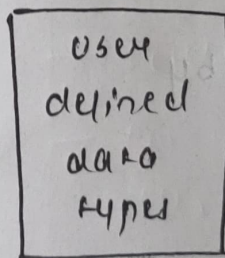 user
defined
data
types